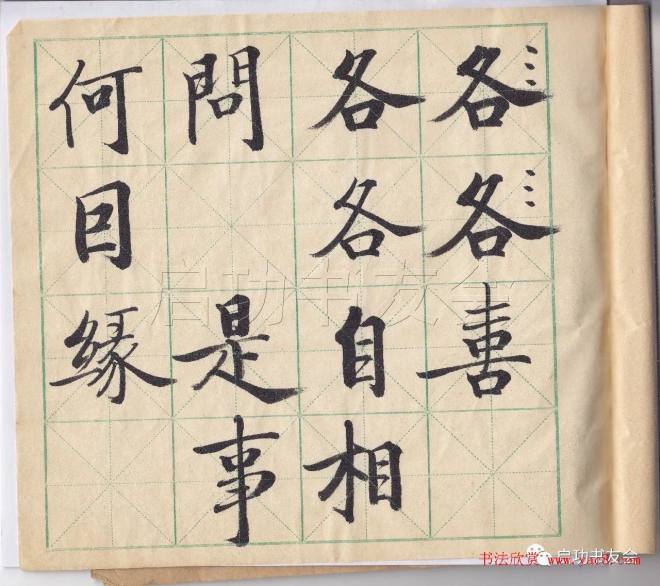 各各
各各自相
問是事
何囙緣
启功书友会
书法欣赏
启功书友会